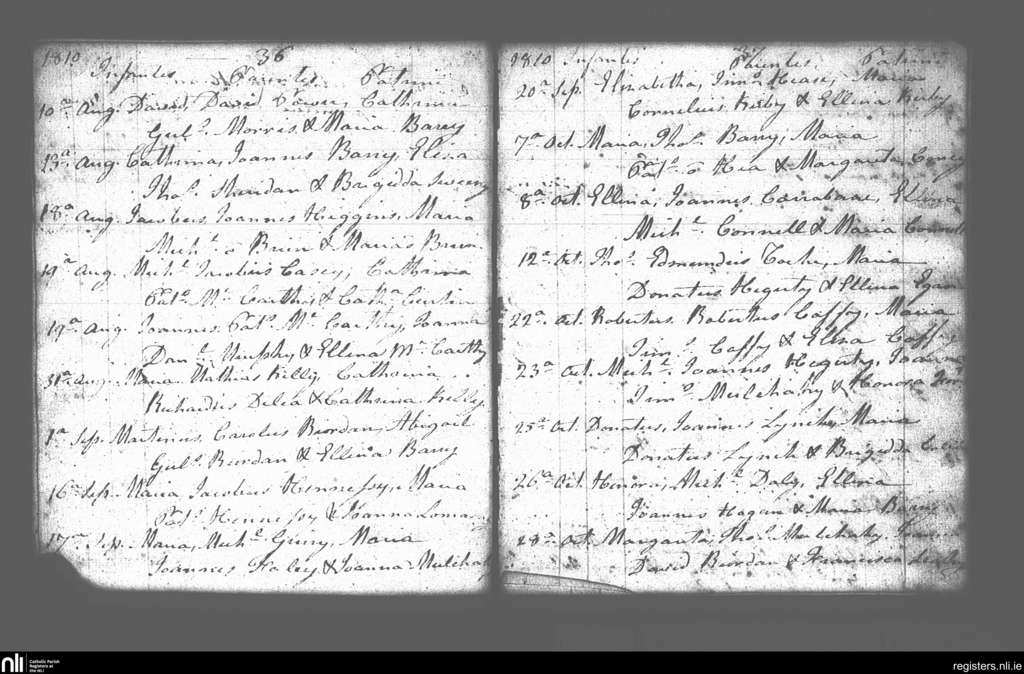 1810 36
Infantes Parentes Patrini
10a Aug. David, David Power, Catherina
Gul.s Morris & Maria Barry
13a Aug. Catherina, Joannes Barry, Eliza
Tho.s & Brigedda Sweeny
18a Aug. Jacobus, Joannes Higgins, Maria
Mich.l o Brien & Maria o Brien
19a Aug. Mich.l Jacobus Casey, Catherina
Pat.s Mc Carthy & Cath.a
19a Aug. Joannes, Pat.s Mc Carthy, Joanna
Dan.l Murphy & Ellena Mc Carthy
31a Aug. Maria Mathias Killy, Catherina
Richardus Delea & Catherina Killy
1a Sep. Martinus, Carolus Riordan, Abigail
Gul.s Riordan & Ellena Barry
16a Sep. Maria Jacobus Hennessy, Maria
Pat.s Hennessy & Joanna
17a Sep. Maria, Mich.l Maria
Joannes Haley & Joanna
1810 Infantes Parentes Patrini
20a Sep. Elizabetha, Jim.s Maria
Cornelius Kirby & Ellena Kirby
7a Oct. Maria, Tho.s Barry, Maria
Pat.s o Hea & Margarita
8a Oct. Ellena, Joannes Ellena
Mich.l Connell & Maria Connell
12a Oct. Tho.s Edmundus Maria
Donatus Hegerty & Ellena
22a Oct. Robertus Robertus Coffy, Maria
Jim.s Coffy & Eliza Coffy
23a Oct. Mich.l Joannes Hegerty, Joanna
Jim.s Mulchahy & Honora
25a Oct. Donatus, Joannes Lynch, Maria
Donatus Lynch & Brigedda
26a Oct. Honora, Mich.l Daly, Ellena
Joannes Hagan & Maria
28a Oct. Margarita, Tho.s Mulchahy,
David Riordan &
nli Catholic Parish Registers at the NLI
registers.nli.ie